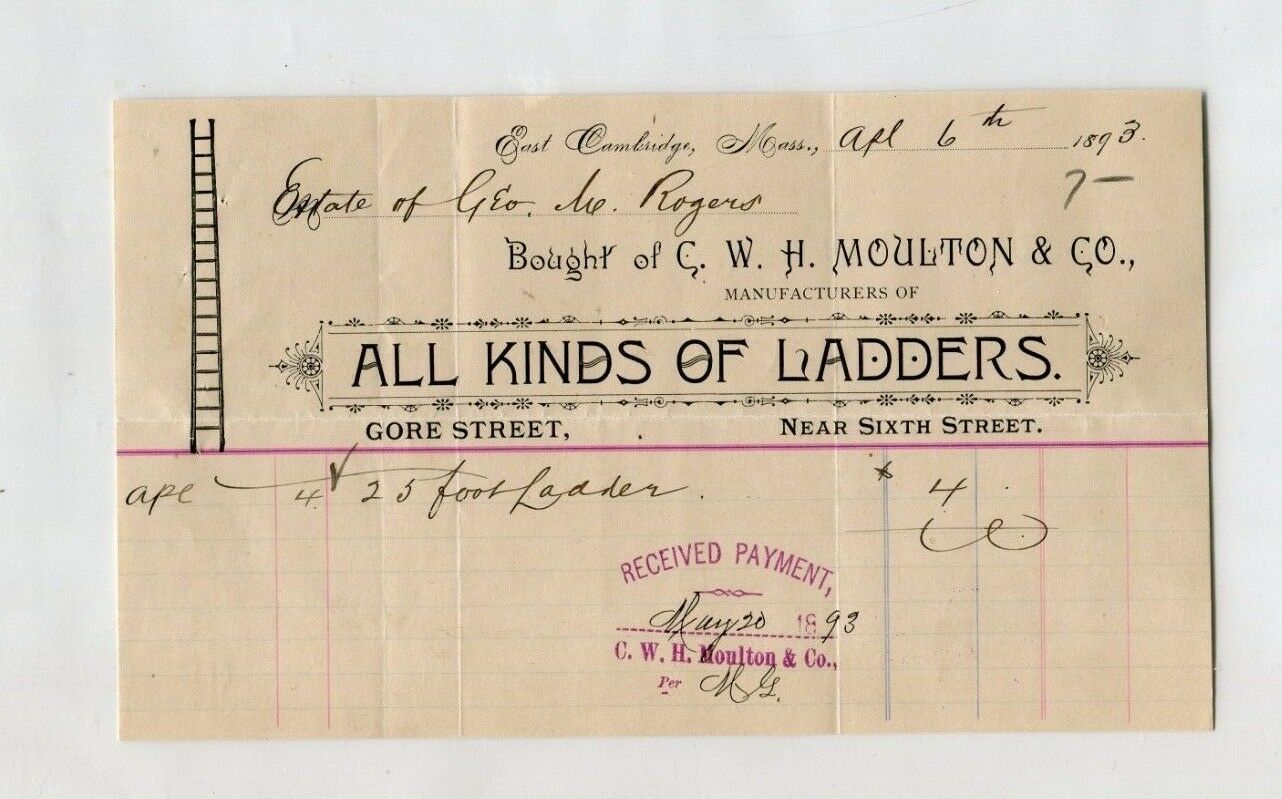 East Cambridge, Mass., Apl 6th 1893.
7—
Estate of Geo. M. Rogers
Bought of C. W. H. MOULTON & CO.,
MANUFACTURERS OF
ALL KINDS OF LADDERS.
GORE STREET, NEAR SIXTH STREET.
Apl 4 √ 25 foot Ladder. $ 4
RECEIVED PAYMENT,
May 20 1893
C. W. H. Moulton & Co.,
Per M G.